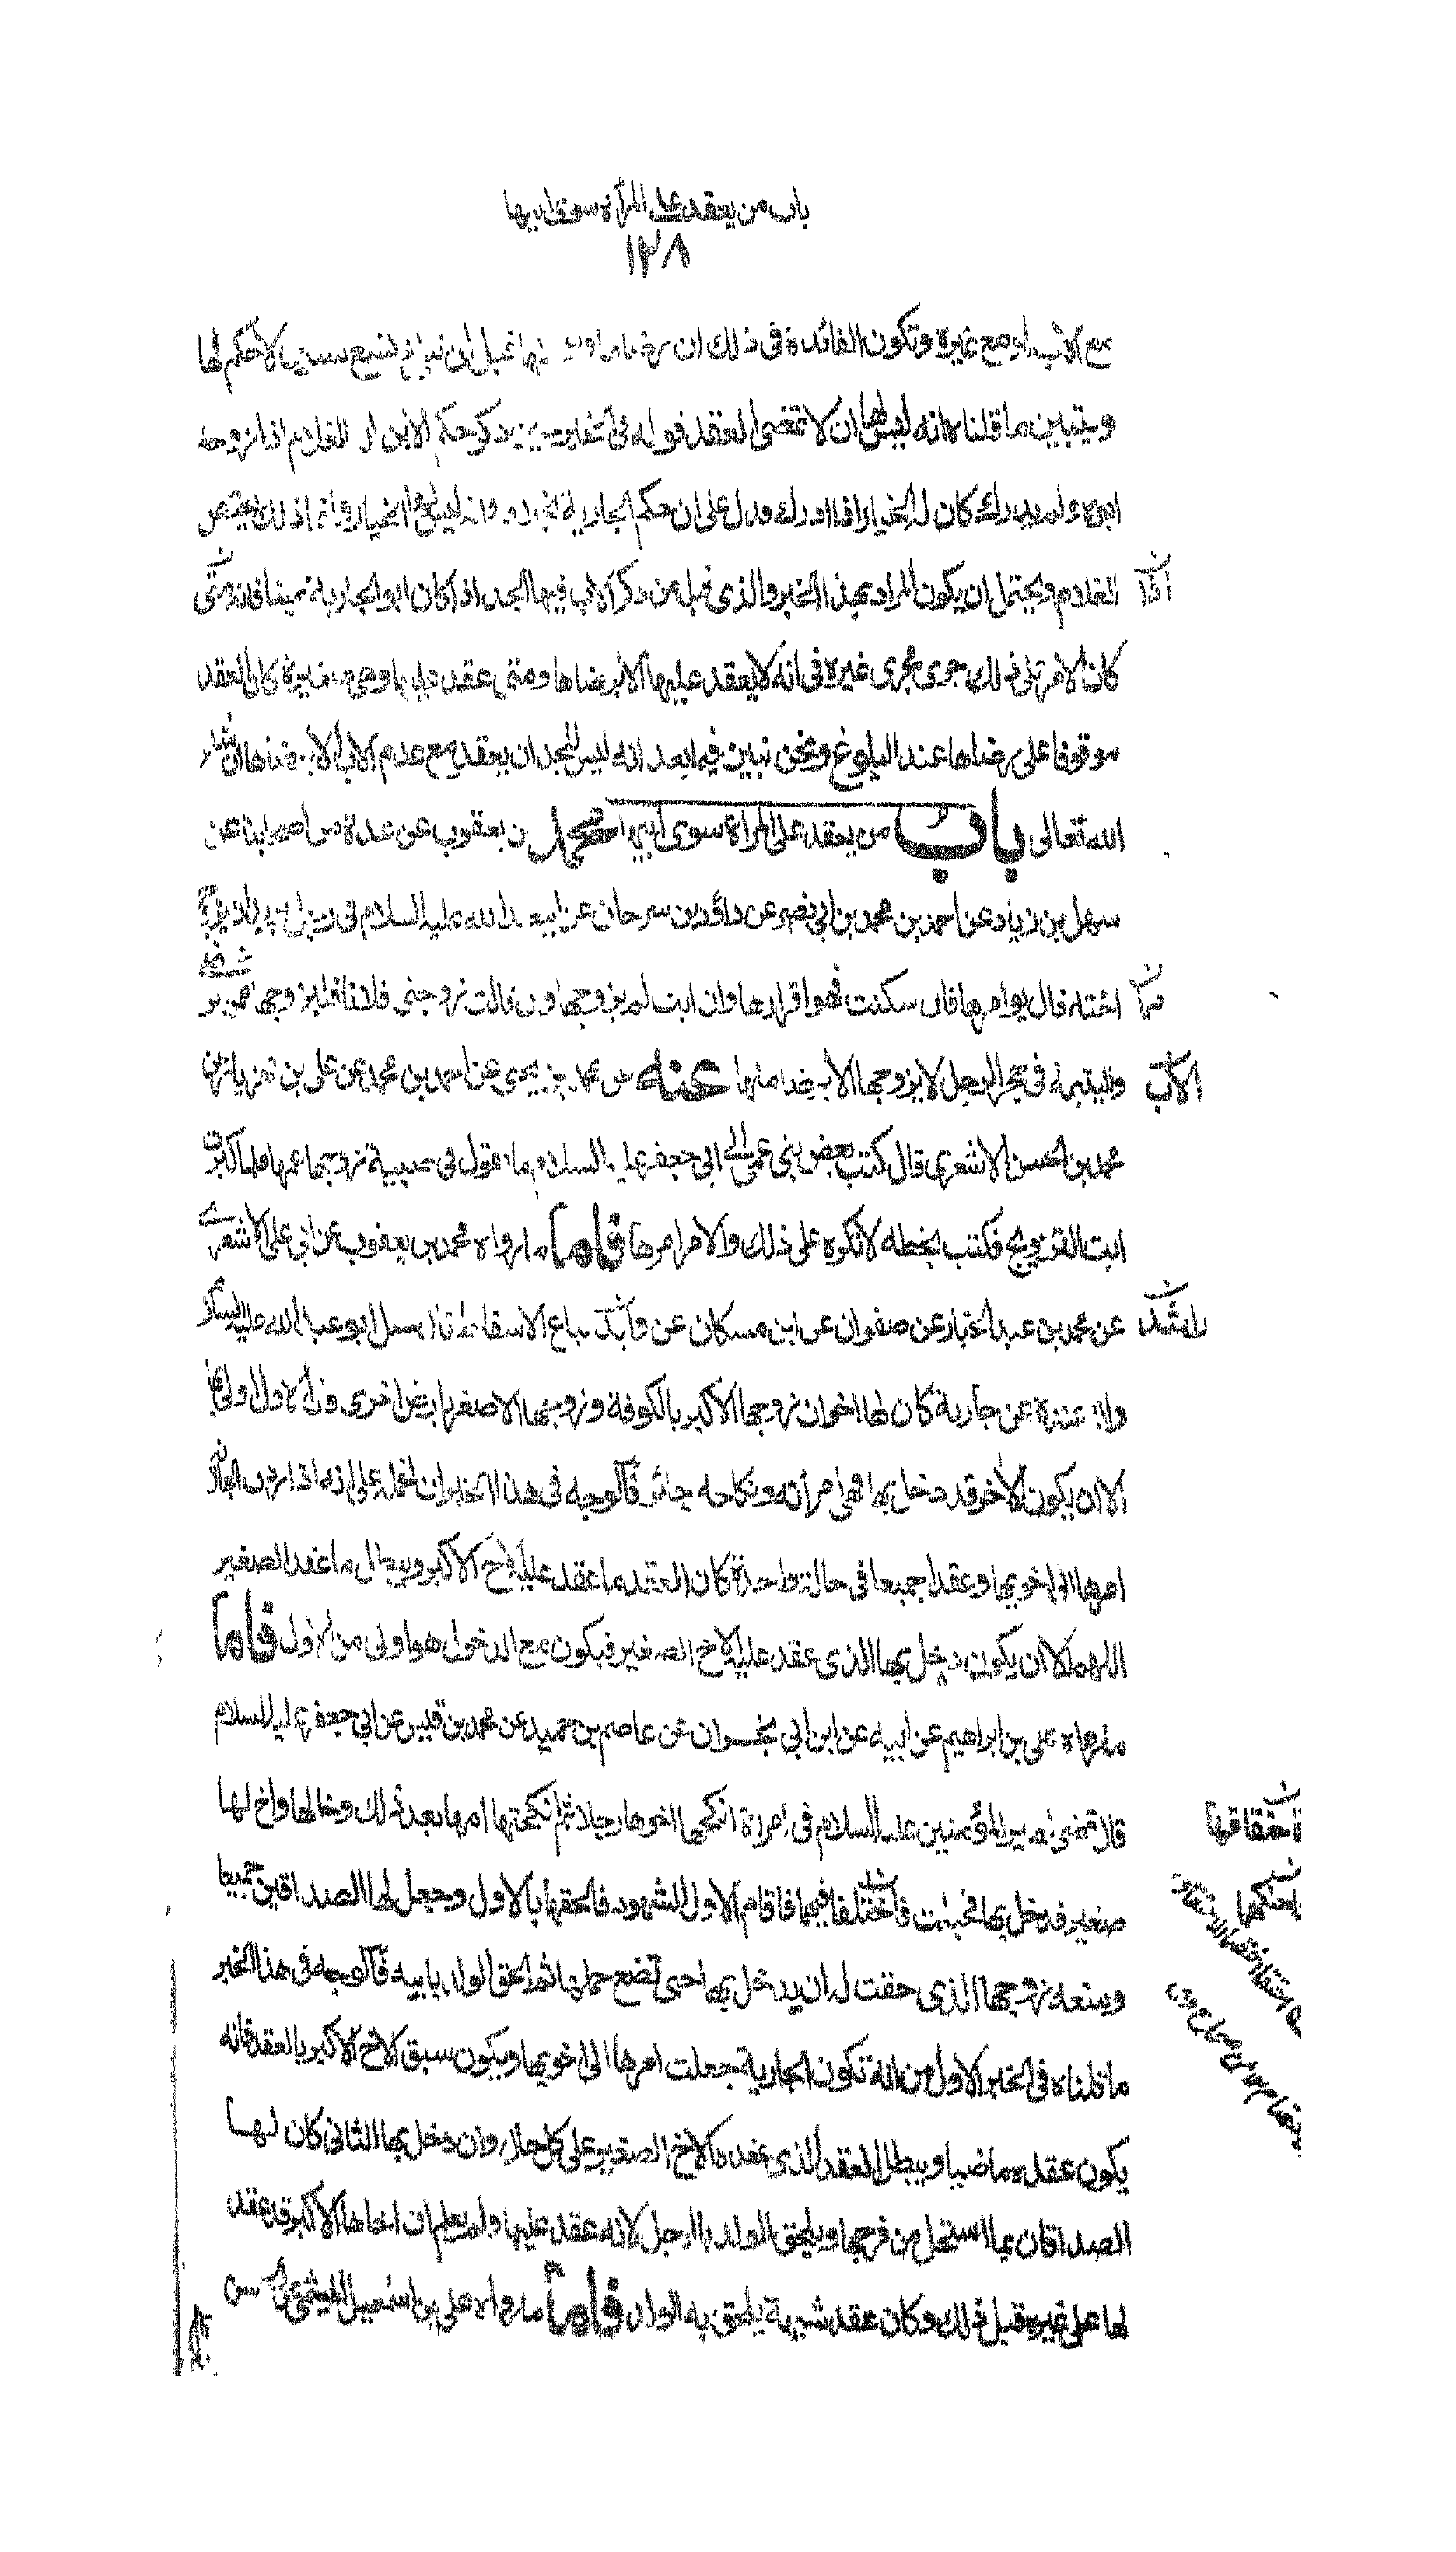 باب من يعقد على المرأة سوى ابيها
١٢٨
مع الاب او مع غيره وتكون الفائدة فى ذلك ان لا حكم لها
ويتبين ما قلناه انه ليس لها ان لا تمضى العقد قوله فى الخبر حين ذكر حكم الابن ان الغلام اذا زوجه
ابوه ولم يدرك كان له الخيار اذا ادرك ودل على ان حكم الجارية بخلافه وانه ليس لها الخيار وانما ذلك يختص
الغلام ويحتمل ان يكون المراد بهذا الخبر والذى قبله من ذكر الاب فيها الجد اذا كان ابو الجارية ميتا فانه متى
اذا
كان الامر على ذلك جرى مجرى غيره فى انه لا يعقد عليها الا برضاها ومتى عقد عليها وهى صغيرة كان العقد
موقوفا على رضاها عند البلوغ ونحن نبين فيما بعد انه ليس للجد ان يعقد مع عدم الاب الا برضاها ان شاء
الله تعالى باب من يعقد على المرأة سوى ابيها محمد بن يعقوب عن عدة من اصحابنا عن
سهل بن زياد عن احمد بن محمد بن ابى نصر عن داؤد بن سرحان عن ابى عبد الله عليه السلام فى رجل يريد ان يزوج
اخته قال يوامرها فان سكتت فهو اقرارها وان ابت لم يزوجها وان قالت زوجنى فلانا فليزوجها ممن تر
واليتيمة فى حجر الرجل لا يزوجها الا برضا منها عنه عن محمد بن يحيى عن احمد بن محمد عن على بن مهزيار عن
الاب
محمد بن الحسن الاشعرى قال كتب بعض بنى عمى الى ابى جعفر عليه السلام ما تقول فى صبية زوجها عمها فلما كبرت
ابت التزويج فكتب بخطه لا تكره على ذلك والامر امرها فاما ما رواه محمد بن يعقوب عن ابى على الاشعرى
عن محمد بن عبد الجبار عن صفوان عن ابن مسكان عن وليد بياع الاسفاط قال سئل ابو عبد الله عليه السلام
وانا عنده عن جارية كان لها اخوان زوجها الاكبر بالكوفة وزوجها الاصغر بارض اخرى قال الاول اولى بها
الا ان يكون الاخر قد دخل بها فهى امرأته ونكاحه جائز فالوجه فى هذا الخبر ان نحمله على انه اذا ردت الجارية
امرها الى اخويها وعقدا جميعا فى حالة واحدة كان العقد ما عقد عليه الاخ الاكبر ويبطل ما عقد الصغير
اللهم الا ان يكون دخل بها الذى عقد عليه الاخ الصغير فيكون مع الدخول هو اولى من الاول فاما
ما رواه على بن ابراهيم عن ابيه عن ابن ابى نجران عن عاصم بن حميد عن محمد بن قيس عن ابى جعفر عليه السلام
قال قضى امير المؤمنين عليه السلام فى امراة انكحها اخوها رجلا ثم انكحتها امها بعد ذلك وخالها واخ لها
صغير فدخل بها فحبلت فاختلفا فيها فاقام الاول الشهود فالحقها بالاول وجعل لها الصداقين جميعا
ومنعه زوجها الذى حقت له ان يدخل بها حتى تضع حملها ثم الحق الولد بابيه فالوجه فى هذا الخبر
ما قلناه فى الخبر الاول من انه تكون الجارية جعلت امرها الى اخويها ويكون سبق الاخ الاكبر بالعقد فانه
يكون عقده ماضيا ويبطل العقد الذى عقده الاخ الصغير على كل حال وان دخل بها الثانى كان لها
الصداقان بما استحل من فرجها ويلحق الولد بالرجل لانه عقد عليها ولم يعلم ان اخاها الاكبر قد عقد
لها على غيره قبل ذلك وكان عقد شبهة يلحق به الولد فاما ما رواه على بن اسمعيل الميثمى عن الحسن